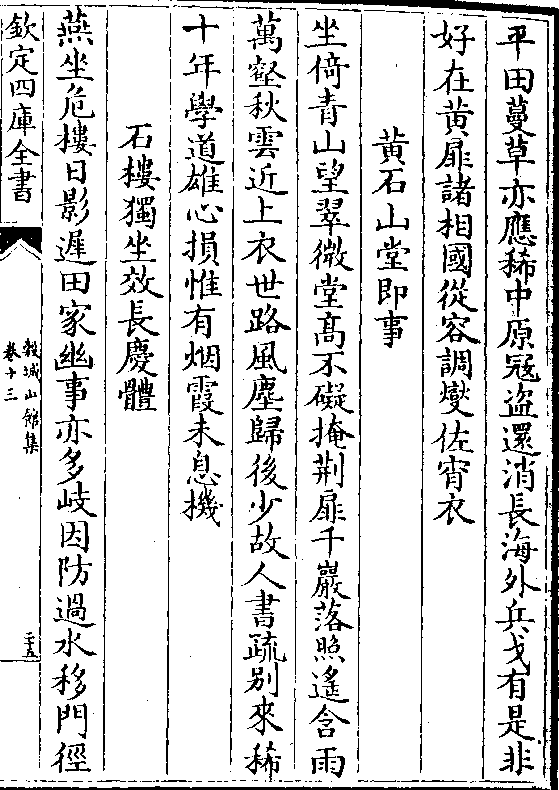 平田蔓草亦應稀中原冦盗還消長海外兵戈有是非
好在黄扉諸相國從容調爕佐宵衣
黄石山堂即事
坐倚青山望翠微堂高不礙掩荆扉千巖落照遙含雨
萬壑秋雲近上衣世路風塵歸後少故人書疏别來稀
十年學道雄心損惟有烟霞未息機
石樓獨坐效長慶體
燕坐危樓日影遲田家幽事亦多岐因防過水移門徑
欽定四庫全書
穀城山館集
卷十三
二十五